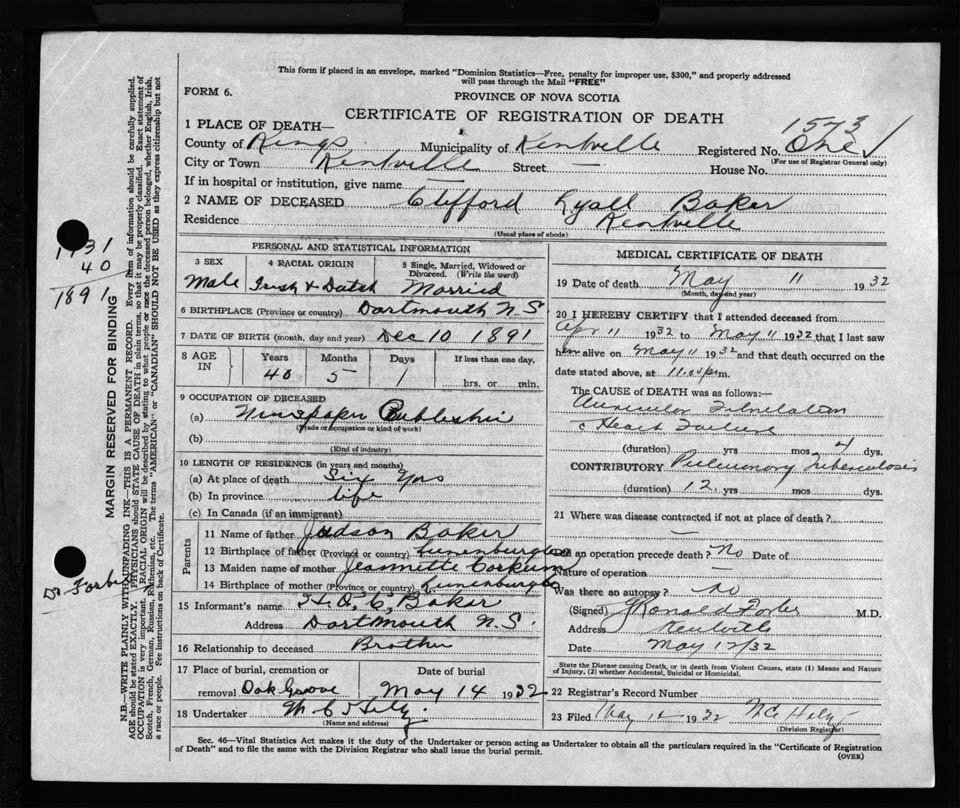 This form if placed in an envelope, marked "Dominion Statistics—Free, penalty for improper use, $300," and properly addressed
will pass through the Mail "FREE"
FORM 6.
PROVINCE OF NOVA SCOTIA
CERTIFICATE OF REGISTRATION OF DEATH
1573
1 PLACE OF DEATH—
County of Kings Municipality of Kentville Registered No. One
(For use of Registrar General only)
City or Town Kentville Street — House No.
If in hospital or institution, give name —
2 NAME OF DECEASED Clifford Lyall Baker
Residence Kentville
(Usual place of abode)
PERSONAL AND STATISTICAL INFORMATION
3 SEX 4 RACIAL ORIGIN 5 Single, Married, Widowed or
Divorced. (Write the word)
Male Irish & Dutch Married
6 BIRTHPLACE (Province or country) Dartmouth N.S
7 DATE OF BIRTH (month, day and year) Dec 10 1891
8 AGE IN Years Months Days If less than one day,
40 5 1 hrs. or min.
9 OCCUPATION OF DECEASED
(a) Newspaper Publisher
(Trade or occupation or kind of work)
(b)
(Kind of industry)
10 LENGTH OF RESIDENCE (in years and months)
(a) At place of death Six Yrs
(b) In province life
(c) In Canada (if an immigrant)
Parents
11 Name of father Judson Baker
12 Birthplace of father (Province or country) Lunenburg Co
13 Maiden name of mother Jeannette Corkum
14 Birthplace of mother (Province or country) Lunenburg Co
15 Informant's name H. C. Baker
Address Dartmouth N.S.
16 Relationship to deceased Brother
17 Place of burial, cremation or Date of burial
removal Oak Grove May 14 1932
18 Undertaker W C Hiltz
(Name and address)
MEDICAL CERTIFICATE OF DEATH
19 Date of death May 11 1932
(Month, day and year)
20 I HEREBY CERTIFY that I attended deceased from
Apr 11 1932 to May 11 1932 that I last saw
him alive on May 11 1932 and that death occurred on
date stated above, at m.
The CAUSE OF DEATH was as follows:—
Auricular Fibrillation
c Heart Failure
(duration) yrs mos 4 dys.
CONTRIBUTORY Pulmonary Tuberculosis
(duration) 12 yrs mos dys.
21 Where was disease contracted if not at place of death?
—
Did an operation precede death? No Date of
Nature of operation —
Was there an autopsy? No
(Signed) J Ronald Forbes M.D.
Address Kentville
Date May 12/32
State the Disease causing Death, or in death from Violent Causes, state (1) Means and Nature
of Injury, (2) whether Accidental, Suicidal or Homicidal.
22 Registrar's Record Number
23 Filed May 12 1932 W C Hiltz
(Division Registrar)
Sec. 46—Vital Statistics Act makes it the duty of the Undertaker or person acting as Undertaker to obtain all the particulars required in the "Certificate of Registration
of Death" and to file the same with the Division Registrar who shall issue the burial permit.
(OVER)
1931
40
1891
Dr Forbes
MARGIN RESERVED FOR BINDING
N.B.—WRITE PLAINLY WITH UNFADING INK—THIS IS A PERMANENT RECORD. Every item of information should be carefully supplied.
AGE should be stated EXACTLY. PHYSICIANS should STATE CAUSE OF DEATH in plain terms, so that it may be properly classified. Exact statement of
OCCUPATION is very important. RACIAL ORIGIN will be described by stating to what people or race the deceased person belonged, whether English, Irish,
Scotch, French, German, Russian, Ruthenian, etc. The terms "AMERICAN" or "CANADIAN" SHOULD NOT BE USED as they express citizenship but not
a race or people. See instructions on back of Certificate.